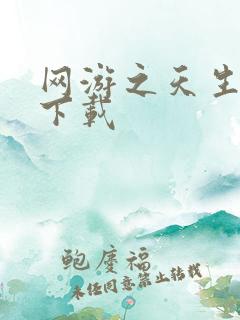 网游之天生
下载
鲍廑福
未经同意禁止转载